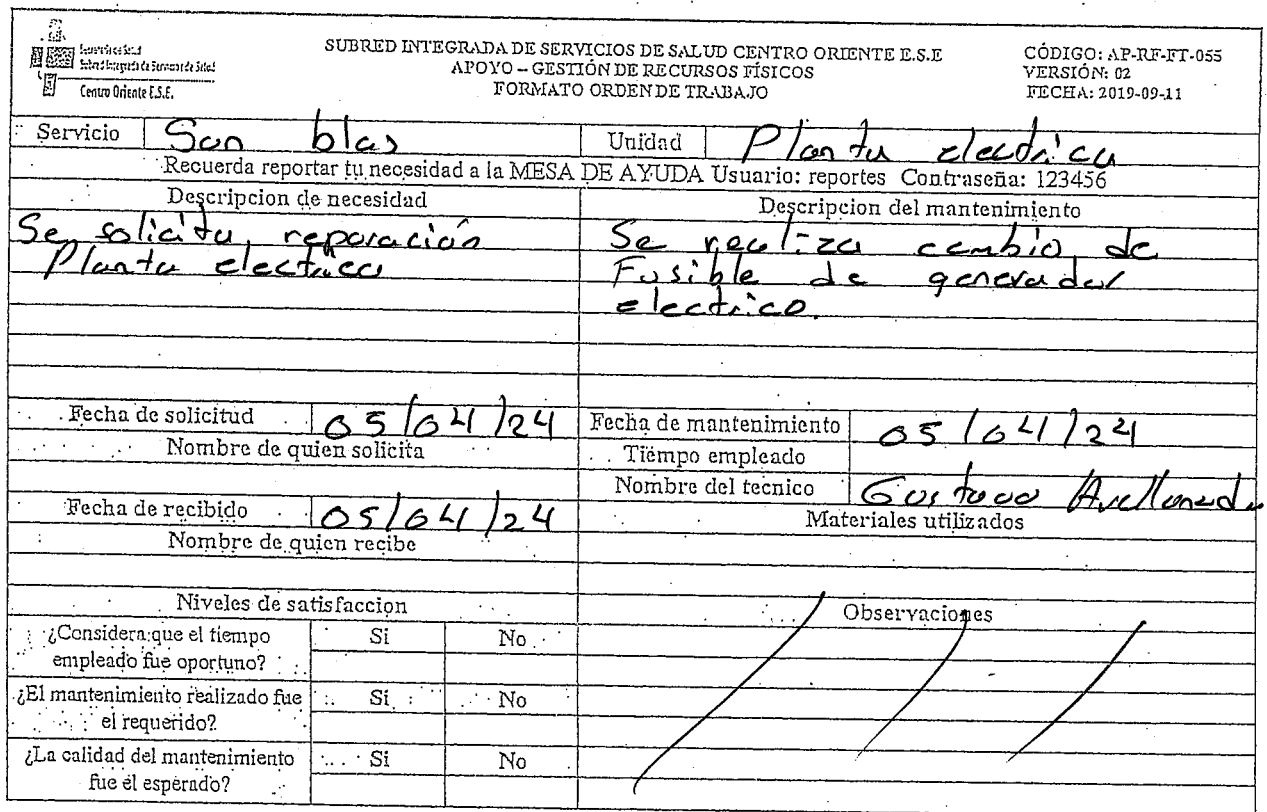 Secretaría de Salud
Subred Integrada de Servicios de Salud
Centro Oriente E.S.E.
SUBRED INTEGRADA DE SERVICIOS DE SALUD CENTRO ORIENTE E.S.E
APOYO – GESTIÓN DE RECURSOS FÍSICOS
FORMATO ORDEN DE TRABAJO
CÓDIGO: AP-RF-FT-055
VERSIÓN: 02
FECHA: 2019-09-11
Servicio San blas Unidad Planta electrica
Recuerda reportar tu necesidad a la MESA DE AYUDA Usuario: reportes Contraseña: 123456
Descripcion de necesidad
Se solicita reparación
Planta electrica
Descripcion del mantenimiento
Se realiza cambio de
Fusible de generador
electrico.
Fecha de solicitud 05/04/24
Nombre de quien solicita
Fecha de mantenimiento 05/04/24
Tiempo empleado
Nombre del tecnico Gustavo Avellaneda
Fecha de recibido 05/04/24
Materiales utilizados
Nombre de quien recibe
Niveles de satisfaccion
Observaciones
¿Considera que el tiempo
empleado fue oportuno?
Si No
¿El mantenimiento realizado fue
el requerido?
Si No
¿La calidad del mantenimiento
fue él esperado?
Si No